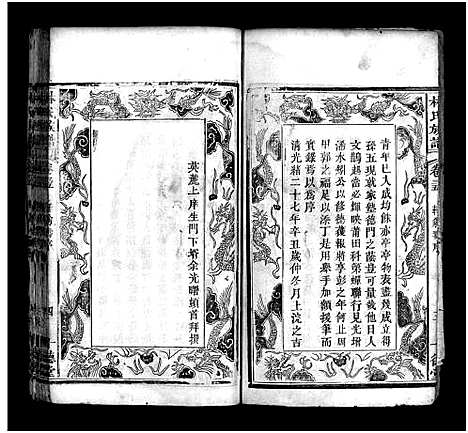 林氏族譜
卷五
青年已入成均餘亦亭亭物表盡幾成立得
孫五現就家塾德門之蔭豈可量哉他日人
文鵲起當必輝映莆田科第蟬聯行見光增
湧水紹公以修德獲報將享彭之年何止周
甲郭之福足以添丁是用忝手加額援筆而
實錄焉以爲序
清光緒二十七年辛丑歲仲冬月上浣之吉
英麓上庠生門下壻余光曙頓首拜撰